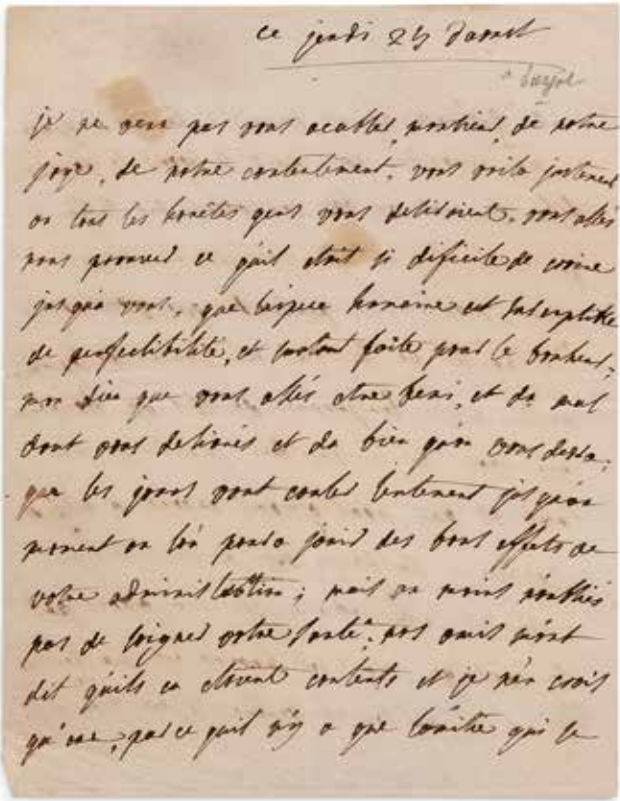 ce jeudi 25 daoust
je ne veux pas vous acabler, monsieur, de notre
joye, de notre contentement. vous voila justement
ou tous les honêtes gens vous desiroient. vous allés
nous prouver ce quil etoit si dificile de croire
jusqua vous, que lespece humaine est susceptible
de perfectibilité, et surtout faite pour le bonheur.
mon dieu que vous allés etre beni, et du mal
dont vous delivrés et du bien quon vous devra.
que les jours vont couler lentement jusquau
moment ou lon poura jouir des bons effets de
votre administration; mais au moins noubliés
pas de soigner votre santé. nos amis mont
dit quils en etoient contents et je nen crois
qu'eux, parce quil ny a que lamitié qui se